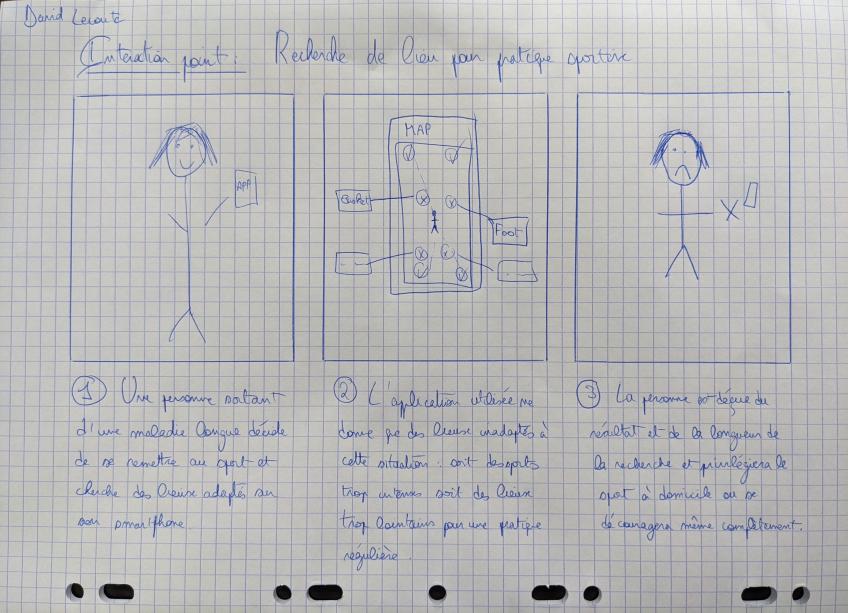 David
Interaction point : Recherche de lieu pour pratique sportive
APP
MAP
Basket
Foot
① Une personne sortant
d'une maladie longue décide
de se remettre au sport et
cherche des lieux adaptés sur
son smartphone.
② L'application utilisée ne
donne que des lieux inadaptés à
cette situation : soit des sports
trop intenses soit des lieux
trop lointains pour une pratique
régulière.
③ La personne est déçue du
résultat et de la longueur de
la recherche et privilégiera le
sport à domicile ou se
découragera même complètement.